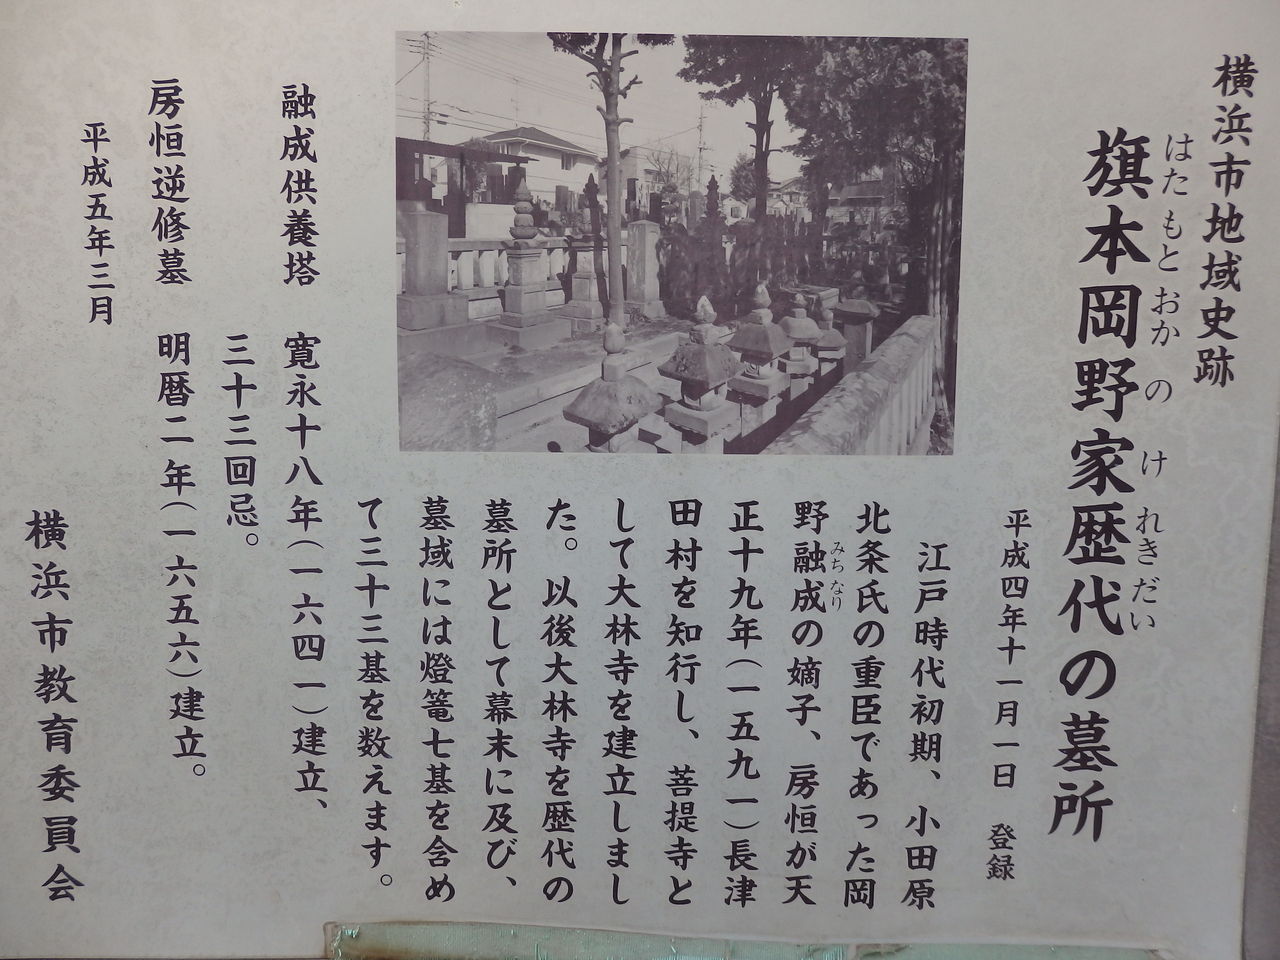 横浜市地域史跡
はたもとおかのけれきだい
旗本岡野家歴代の墓所
平成四年十一月一日　登録
江戸時代初期、小田原
北条氏の重臣であった岡
みちなり
野融成の嫡子、房恒が天
正十九年（一五九一）長津
田村を知行し、菩提寺と
して大林寺を建立しまし
た。以後大林寺を歴代の
墓所として幕末に及び、
墓域には燈篭七基を含め
て三十三基を数えます。
融成供養塔　寛永十八年（一六四一）建立、
三十三回忌。
房恒逆修墓　明暦二年（一六五六）建立。
平成五年三月
横浜市教育委員会